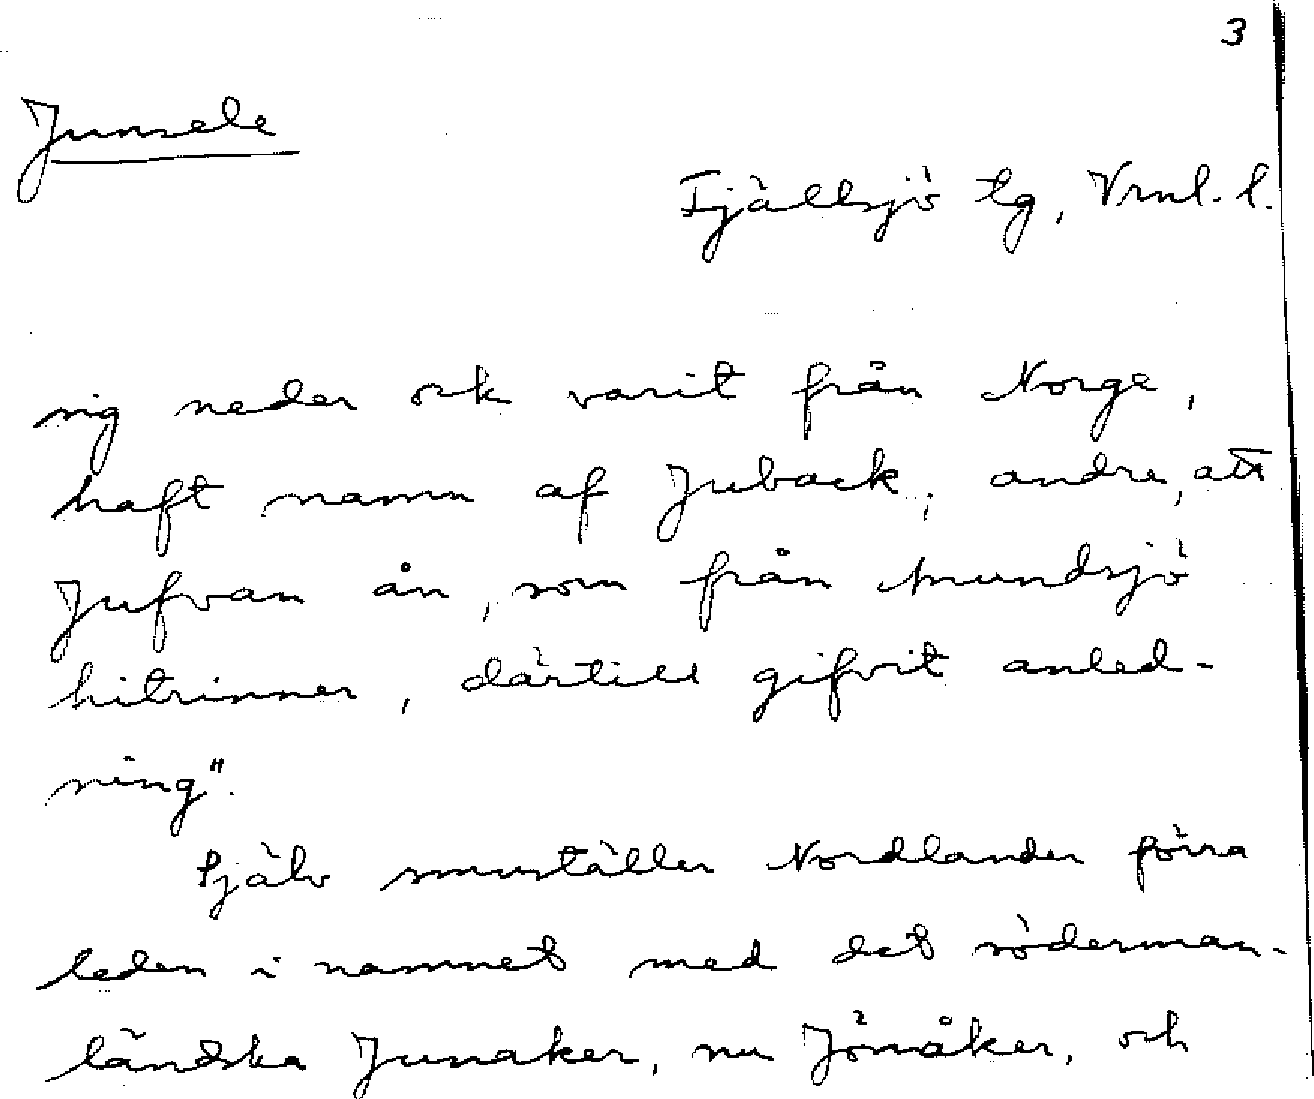 3
Junsele
Fjällsjö tg, Vrnl. l.
sig neder och varit från Norge,
haft namn af Juback; andre, att
Jufvan ån, som från Anundsjö
hitrinner, därtill gifvit anled-
ning".
Själv smnställer Nordlander förra
leden i namnet med det söderman-
ländska Junaker, nu Jönåker, och